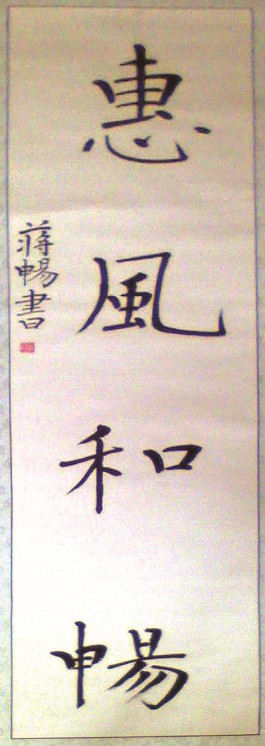 惠風和暢
蔣暢書